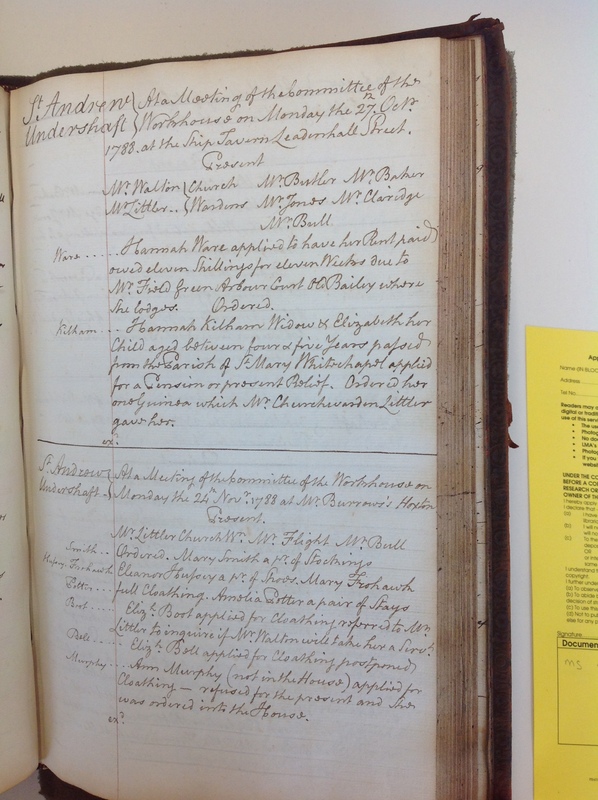 St. Andrew Undershaft { At a Meeting of the Committee of the
Workhouse on Monday the 27th. Octr.
1788. at the Ship Tavern Leadenhall Street.
Present
Mr. Walton } Church Mr. Butler Mr. Baker
Mr. Littler .. } Wardens Mr. Jones Mr. Claridge
Mr. Bull
Ware ..... Hannah Ware applied to have her Rent paid
owed eleven Shillings for eleven Weeks due to
Mr. Field Green Arbour Court Old Bailey where
she lodges. Ordered.
Kilham ... Hannah Kilham Widow & Elizabeth her
Child aged between four & five Years passed
from the Parish of St. Mary Whitechapel applied
for a Pension or present Relief. Ordered her
one Guinea which Mr. Churchwarden Littler
gave her.
exd.
St. Andrew Undershaft { At a Meeting of the Committee of the Workhouse on
Monday the 24 Novr. 1788 at Mr. Burrows's Hoxton
Present.
Mr. Littler Church Wn. Mr. Flight Mr. Bull
Smith .. Ordered. Mary Smith a pr. of Stockings
Hussey. Frohawk Eleanor Hussey a pr. of Shoes. Mary Frohawk
Potter ... full Cloathing. Amelia Potter a pair of Stays
Boot .... Elizth. Boot applied for Cloathing referred to Mr.
Littler to inquire if Mr. Walton will take her a Servt.
Bell .... Elizth. Bell applied for Cloathing postponed
Murphy .... Ann Murphy (not in the House) applied for
Cloathing — refused for the present and She
was ordered into the House.
exd.
Name (IN BLOC
Address
Tel No.
Readers may
digital or tradit
use of this servic
LMA's
If you
websit
UNDER THE CO
BEFORE A CO
RESEARCH OR
OWNER OF TH
I hereby
I declare that
(a) I have
(b) I will n
(c) To the
OR
same
I understand
copyright.
I further under
(a) To observe
(b) To abide
decision of st
(c) To use th
(d) Not to pu
else for any
Signature:
Documen
MS